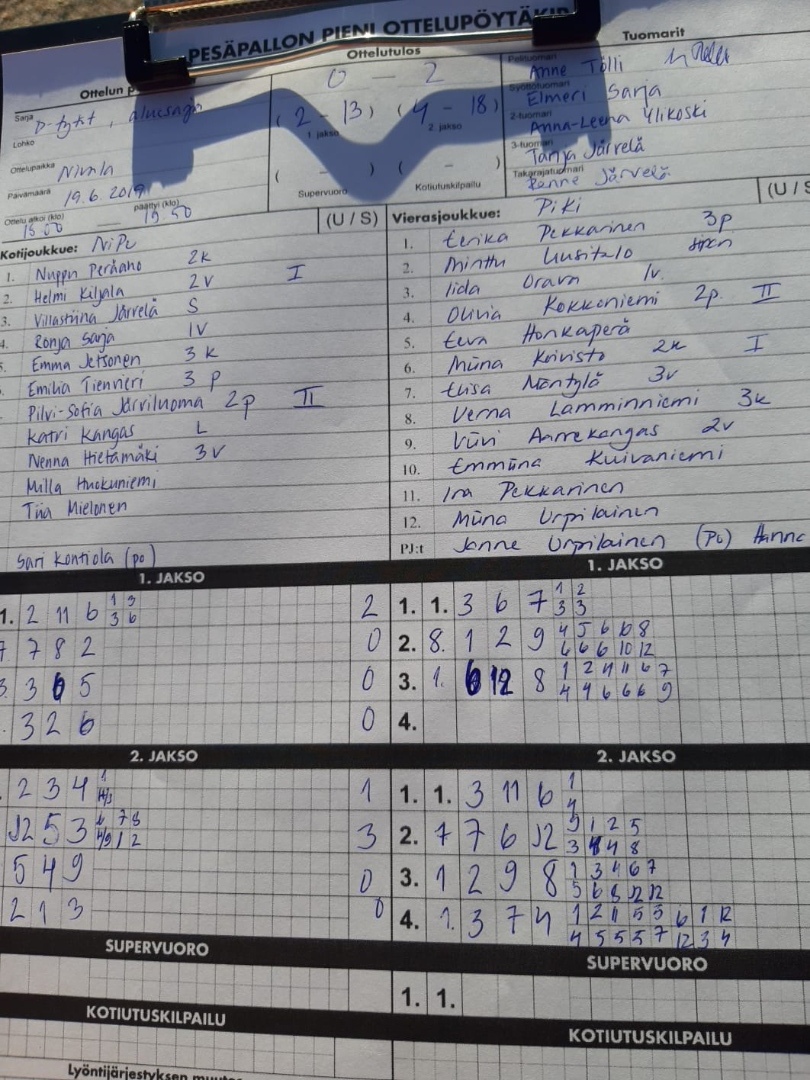 PESÄPALLON PIENI OTTELUPÖYTÄKIR
Ottelun p
Ottelutulos
Tuomarit
Sarja
D-tytöt, aluesarja
Lohko
Ottelupaikka
Nivala
Päivämäärä
19.6.2019
Ottelu alkoi (klo) päättyi (klo)
18.00 19.50
0 - 2
(2 - 13) (4 - 18)
1. jakso 2. jakso
( - ) ( - )
Supervuoro Kotiutuskilpailu
Pelituomari
Anne Tölli
Syöttötuomari
Elmeri Sarja
2-tuomari
Anna-Leena Ylikoski
3-tuomari
Tanja Järvelä
Takarajatuomari
Renne Järvelä
Kotijoukkue: NiPe (U / S)
1. Nuppu Peräaho 2k
2. Helmi Kiljala 2v I
3. Villastiina Järvelä S
4. Ronja Sarja 1V
5. Emma Jetsonen 3k
Emilia Tienvieri 3p
Pilvi-Sofia Järviluoma 2p II
Katri Kangas L
Nenna Hietamäki 3v
Milla Huokuniemi
Tiia Mielonen
Sari Kontiola (po)
Vierasjoukkue: PiKi (U / S
1. Eerika Pekkarinen 3p
2. Minttu Uusitalo
3. Iida Orava lv.
4. Olivia Kokkoniemi 2p. II
5. Eeva Honkaperä
6. Miina Koivisto 2k I
7. Elisa Mäntylä 3v
8. Verna Lamminniemi 3k
9. Viivi Annekangas 2v
10. Emmiina Kuivaniemi
11. Ina Pekkarinen
12. Miina Urpilainen
PJ:t Janne Urpilainen (Po) Hanne
1. JAKSO
1. 2 11 6 1 3 2
3 6
7 7 8 2 0
3. 3 6 5 0
3 2 6 0
2. JAKSO
2 3 4 1 1
12 5 3 7 8 3
1 2
5 4 9 0
2 1 3 0
SUPERVUORO
KOTIUTUSKILPAILU
Lyöntijärjestyksen muutos
1. JAKSO
1. 1. 3 6 7 1 2
3 3
2. 8. 1 2 9 4 5 6 10 8
6 6 6 10 12
3. 1. 6 12 8 1 2 4 11 6 7
4 4 6 6 6 9
4.
2. JAKSO
1. 1. 3 11 6 1
4
2. 7 7 6 12 9 1 2 5
3 4 4 8
3. 1 2 9 8 1 3 4 6 7
5 6 8 12 12
4. 1. 3 7 4 1 2 11 5 5 6 1 12
4 5 5 5 7 12 3 4
SUPERVUORO
1. 1.
KOTIUTUSKILPAILU